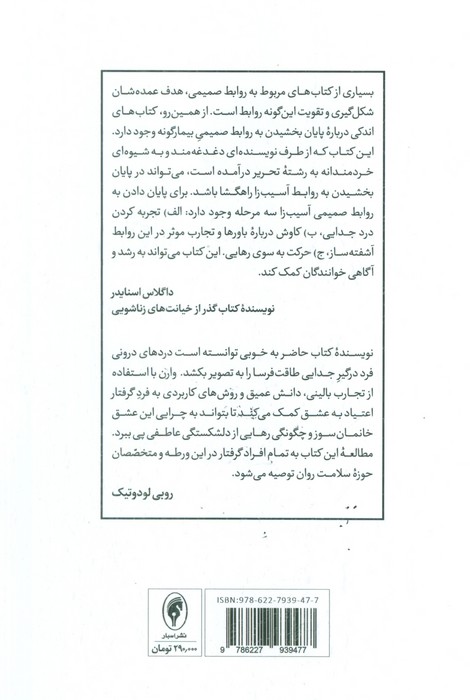 بسیاری از کتاب‌های مربوط به روابط صمیمی، هدف عمده‌شان
شکل‌گیری و تقویت این‌گونه روابط است. از همین‌رو، کتاب‌های
اندکی دربارهٔ پایان بخشیدن به روابط صمیمیِ بیمارگونه وجود دارد.
این کتاب که از طرف نویسنده‌ای دغدغه‌مند و به شیوه‌ای
خردمندانه به رشتهٔ تحریر درآمده است، می‌تواند در پایان
بخشیدن به روابط آسیب‌زا راهگشا باشد. برای پایان دادن به
روابط صمیمی آسیب‌زا سه مرحله وجود دارد: الف) تجربه کردن
درد جدایی، ب) کاوش دربارهٔ باورها و تجارب موثر در این روابط
آشفته‌ساز، ج) حرکت به سوی رهایی. این کتاب می‌تواند به رشد و
آگاهی خوانندگان کمک کند.
داگلاس اسنایدر
نویسندهٔ کتاب گذر از خیانت‌های زناشویی
نویسندهٔ کتاب حاضر به خوبی توانسته است دردهای درونی
فرد درگیرِ جدایی طاقت‌فرسا را به تصویر بکشد. وارن با استفاده
از تجارب بالینی، دانش عمیق و روش‌های کاربردی به فردِ گرفتار
اعتیاد به عشق کمک می‌کند تا بتواند به چرایی این عشق
خانمان‌سوز و چگونگی رهایی از دلشکستگی عاطفی پی ببرد.
مطالعهٔ این کتاب به تمام افراد گرفتار در این ورطه و متخصّصان
حوزهٔ سلامت روان توصیه می‌شود.
روبی لودوتیک
ISBN: 978-622-7939-47-7
9 786227 939477
نشر اسبار
۲۹۰,۰۰۰ تومان